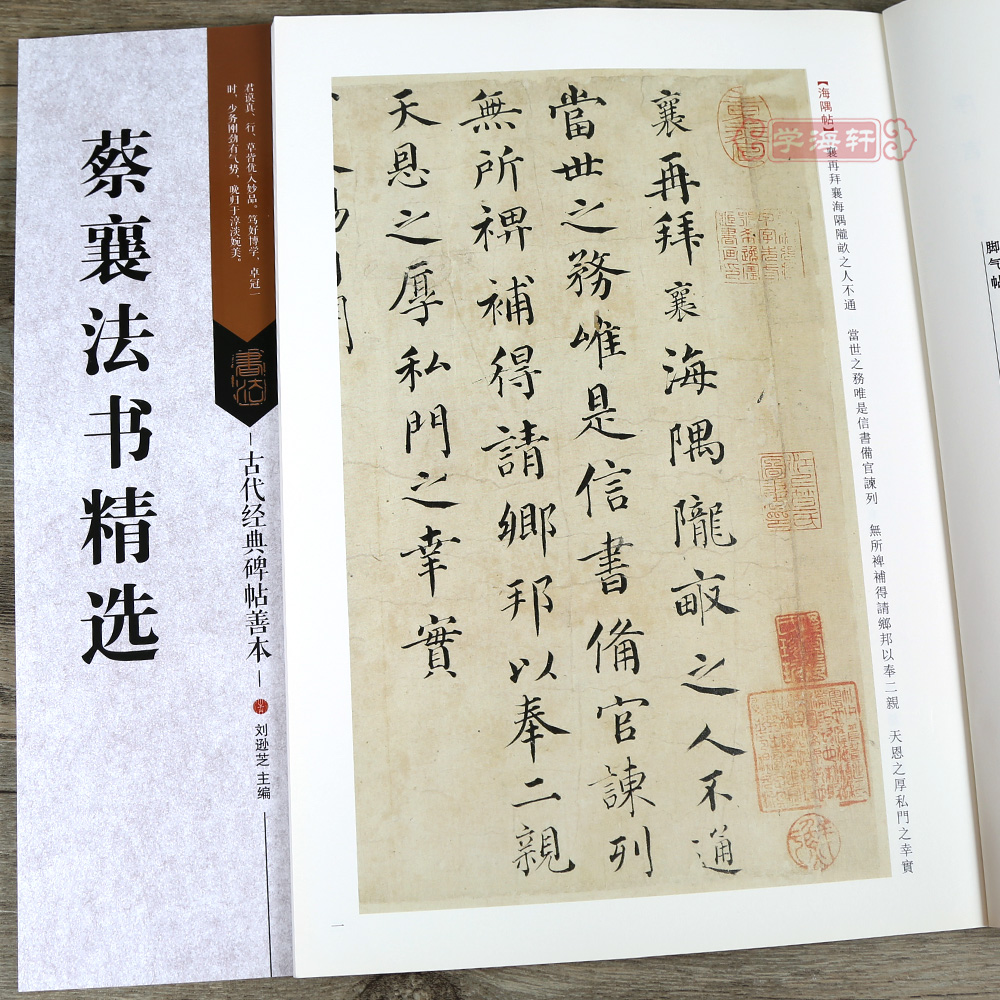 蔡襄法书精选
君谟真、行、草皆优入妙品。笃好博学,卓冠一
时。少务刚劲有气势,晚归于淳淡婉美。
書法
古代经典碑帖善本
刘逊芝 主编
学海轩
【海隅帖】襄再拜襄海隅隴畝之人不通 當世之務唯是信書備官諫列 無所裨補得請鄉邦以奉二親 天恩之厚私門之幸實
襄再拜襄海隅隴畝之人不通
當世之務唯是信書備官諫列
無所裨補得請鄉邦以奉二親
天恩之厚私門之幸實
一
脚气帖